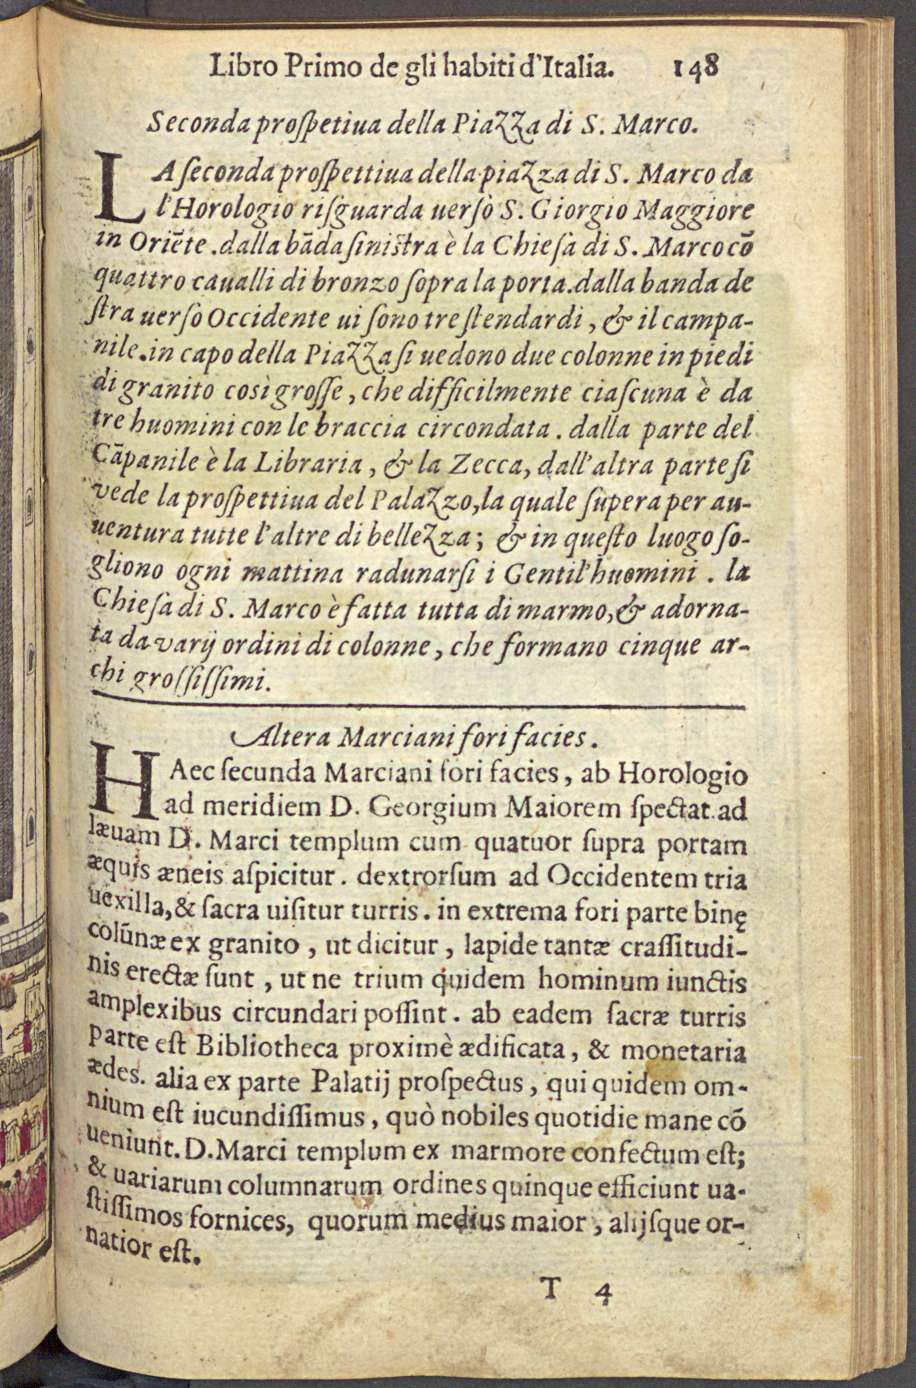 Libro Primo de gli habiti d'Italia. 148
Seconda proſpetiua della Piazza di S. Marco.
LA ſeconda proſpettiua della piazza di S. Marco da
l'Horologio riſguarda uerſo S. Giorgio Maggiore
in Oriẽte. dalla bãda ſiniſtra è la Chieſa di S. Marco cõ
quattro caualli di bronzo ſopra la porta. dalla banda de
ſtra uerſo Occidente ui ſono tre ſtendardi, & il campa-
nile. in capo della Piazza ſi uedono due colonne in piedi
di granito così groſſe, che difficilmente ciaſcuna è da
tre huomini con le braccia circondata. dalla parte del
Cãpanile è la Libraria, & la Zecca, dall'altra parte ſi
vede la proſpettiua del Palazzo, la quale ſupera per au-
uentura tutte l'altre di bellezza; & in queſto luogo ſo-
gliono ogni mattina radunarſi i Gentil'huomini. la
Chieſa di S. Marco è fatta tutta di marmo, & adorna-
ta da varij ordini di colonne, che formano cinque ar-
chi groſſiſſimi.
Altera Marciani fori facies.
HAec ſecunda Marciani fori facies, ab Horologio
ad meridiem D. Georgium Maiorem ſpectat. ad
læuam D. Marci templum cum quatuor ſupra portam
æquis æneis aſpicitur. dextrorſum ad Occidentem tria
uexilla, & ſacra uiſitur turris. in extrema fori parte binę
colũnæ ex granito, ut dicitur, lapide tantæ craſſitudi-
nis erectæ ſunt, ut ne trium quidem hominum iunctis
amplexibus circundari poſſint. ab eadem ſacræ turris
parte eſt Bibliotheca proximè ædificata, & monetaria
ædes. alia ex parte Palatij proſpectus, qui quidem om-
nium eſt iucundiſſimus, quò nobiles quotidie mane cõ
ueniunt. D. Marci templum ex marmore confectum eſt;
& uariarum columnarum ordines quinque efficiunt ua-
ſtiſſimos fornices, quorum medius maior, alijſque or-
natior eſt.
T 4